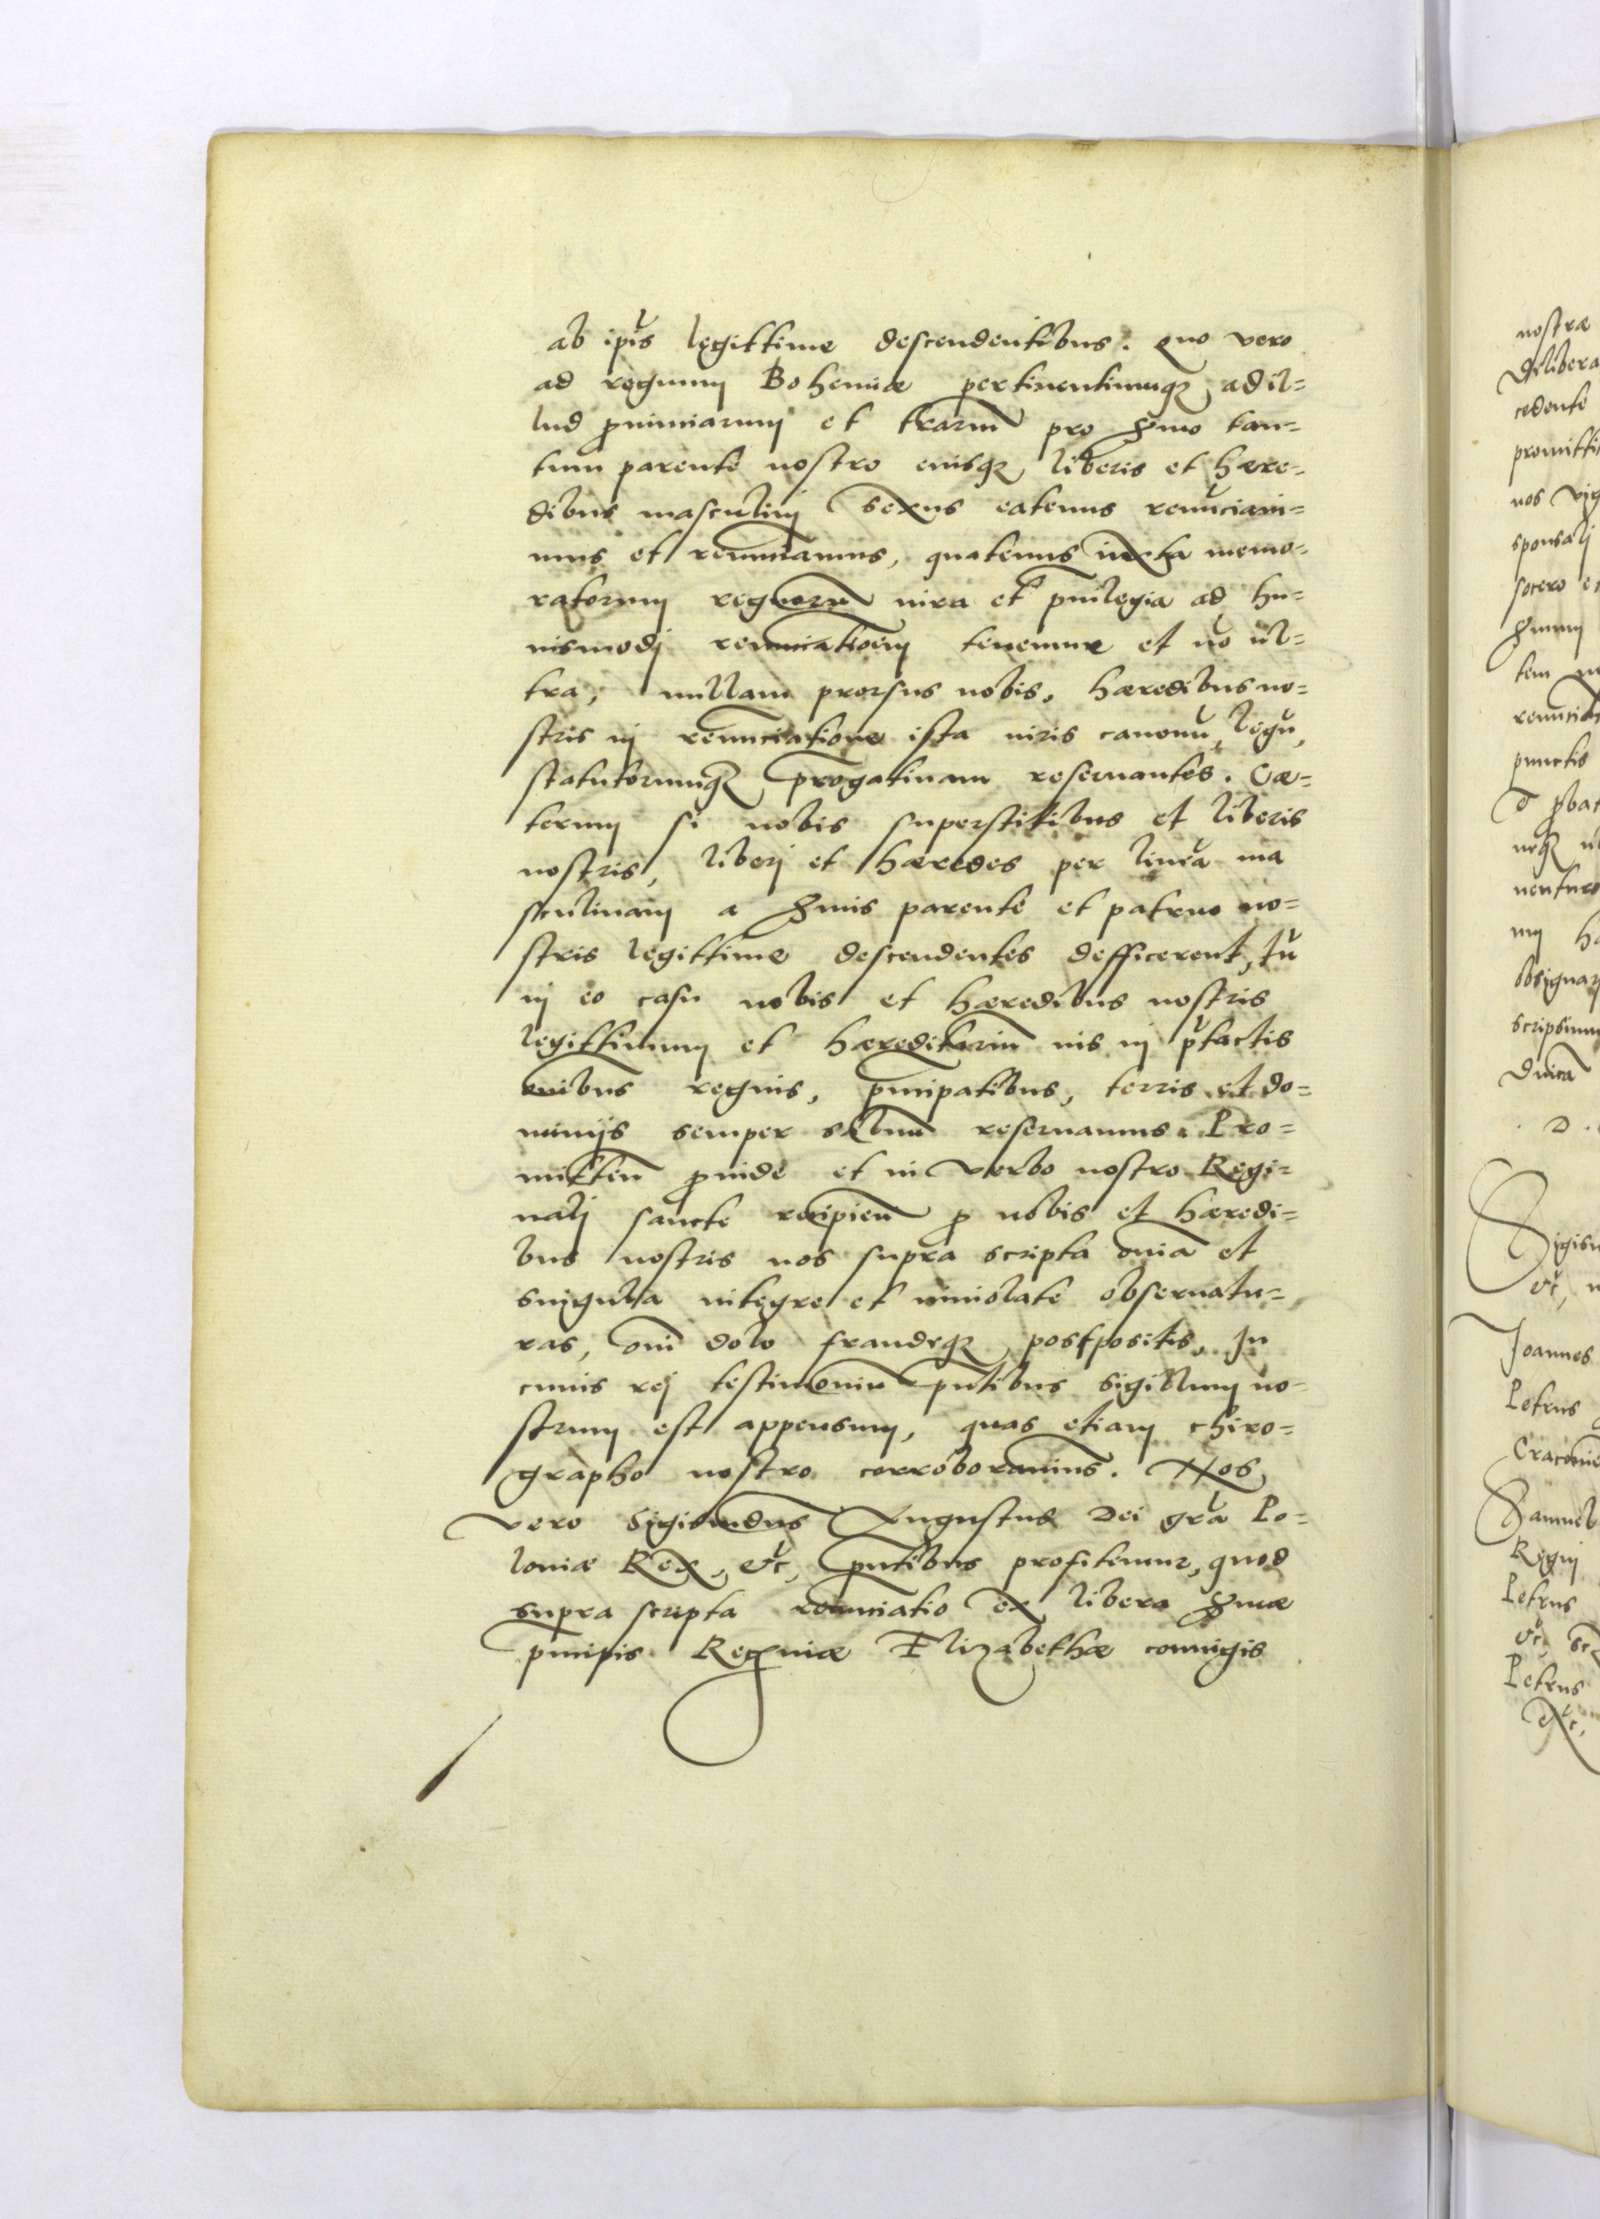 ab ipīs legittime descendentibus. Quo vero
ad regnum Bohemiæ pertinentiumq; ad il=
lud prouinciarum et trarum pro Smo tan=
tum parente nostro eiusq; liberis et hære=
dibus masculini sexus eatenus renūciaui=
mus et renunciamus, quatenus iuxta memo=
ratorum regnorū iura et priuilegia ad hu=
iusmodi renunciationem tenemur et nō ul=
tra, nullam prorsus nobis, hæredibus no=
stris in renunciatione ista iuris canonū, legū,
statutorumq; prærogatiuam reseruantes. Cæ=
terum si nobis superstitibus et liberis
nostris, liberi et hæredes per lineā ma
sculinam a Smis parente et patruo no=
stris legittime descendentes defficerent, tū
in eo casu nobis et hæredibus nostris
legittimum et hæreditarium ius in prætactis
oībus regnis, principatibus, terris et do=
minijs semper saluum reseruamus. Pro=
mitten̄ proinde et in verbo nostro Regi=
nali sancte recipien̄ pro nobis et hæredi=
bus nostris nos supra scripta omīa et
singula integre et inuiolate obseruatu=
ras, om̄i dolo fraudeq; postpositis. In
cuius rei testimonium pn̄tibus sigillum no=
strum est appensum, quas etiam chiro=
grapho nostro corroborauimus. Nos
vero Sigismūdus Augustus Dei grā Po=
loniæ Rex, &c, pn̄tibus profitemur, quod
supra scripta renunciatio ex libera Smæ
principis Reginæ Elizabethæ coniugis
nostræ
cedente
nos
sponsali
punctis
Joannes
Petrus
Samuel
Regni
Petrus
Petrus